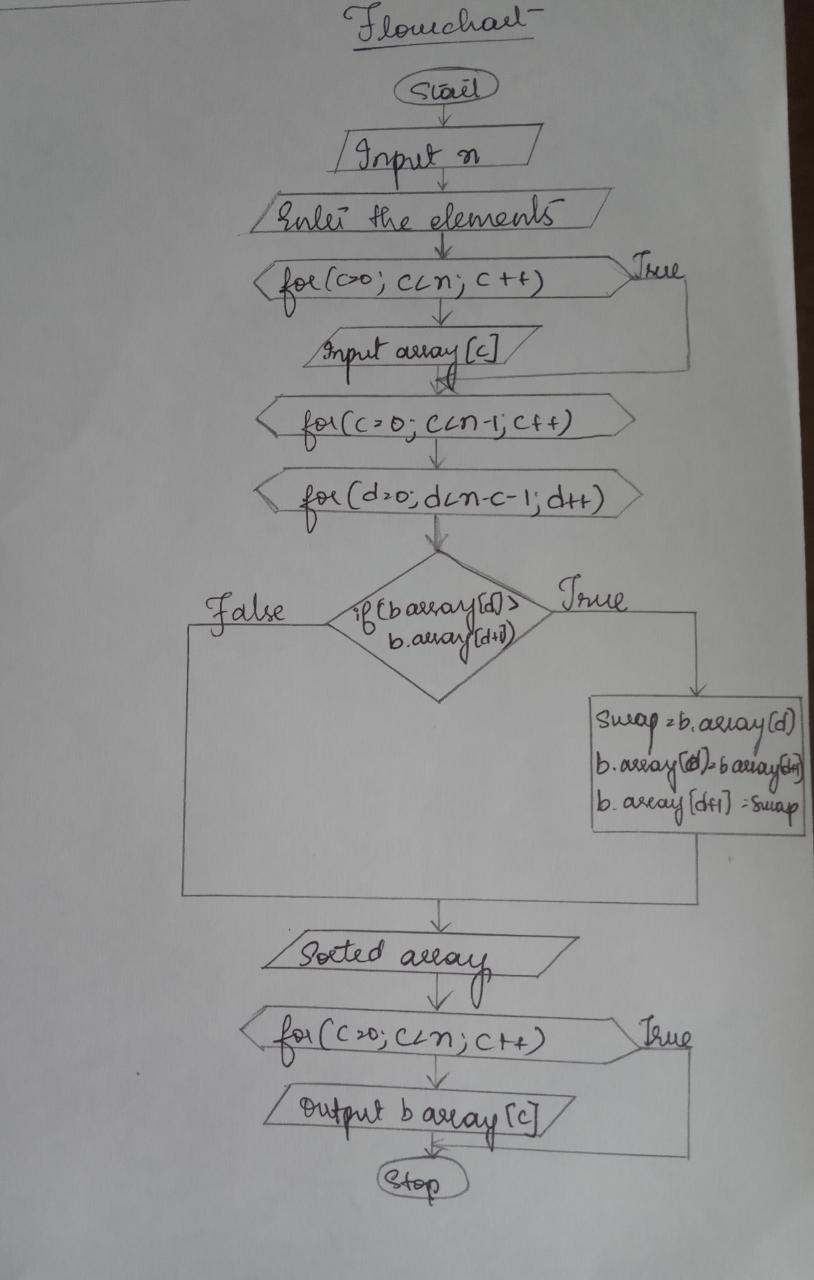 Flowchart
Start
Input n
Enter the elements
for(c=0; c<n; c++)
True
Input array[c]
for(c=0; c<n-1; c++)
for(d=0; d<n-c-1; d++)
False
if(b array[d]>
b.array[d+1])
True
Swap=b.array[d]
b.array[d]=b array[d+1]
b.array[d+1]=Swap
Sorted array
for(c=0; c<n; c++)
True
Output b array[c]
Stop